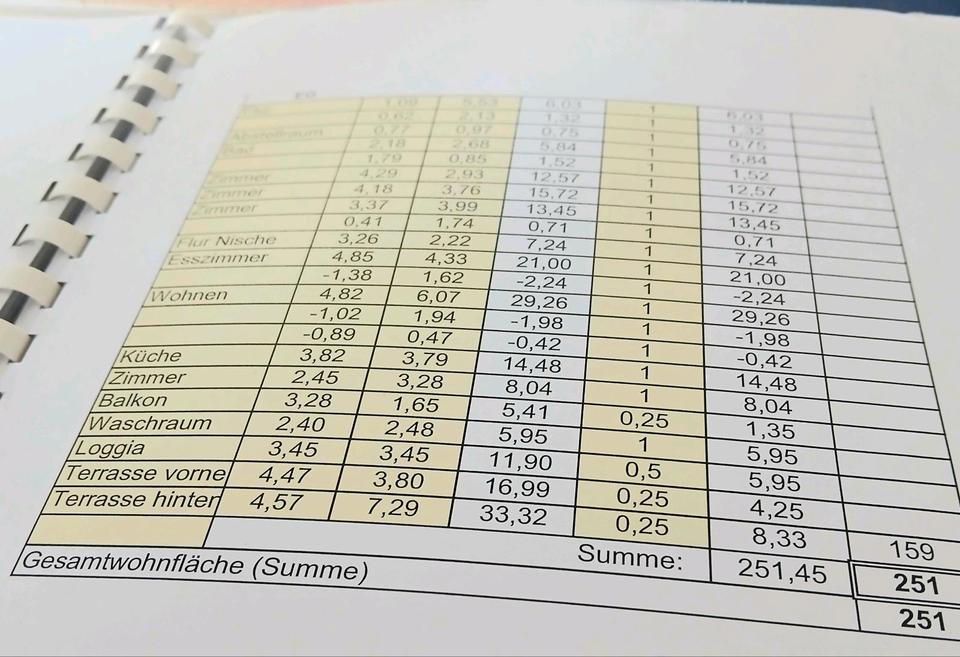 EG
1,09 5,53 6,03 1 6,03
0,62 2,13 1,32 1 1,32
Abstellraum 0,77 0,97 0,75 1 0,75
Bad 2,18 2,68 5,84 1 5,84
1,79 0,85 1,52 1 1,52
Zimmer 4,29 2,93 12,57 1 12,57
Zimmer 4,18 3,76 15,72 1 15,72
Zimmer 3,37 3,99 13,45 1 13,45
0,41 1,74 0,71 1 0,71
Flur Nische 3,26 2,22 7,24 1 7,24
Esszimmer 4,85 4,33 21,00 1 21,00
-1,38 1,62 -2,24 1 -2,24
Wohnen 4,82 6,07 29,26 1 29,26
-1,02 1,94 -1,98 1 -1,98
-0,89 0,47 -0,42 1 -0,42
Küche 3,82 3,79 14,48 1 14,48
Zimmer 2,45 3,28 8,04 1 8,04
Balkon 3,28 1,65 5,41 0,25 1,35
Waschraum 2,40 2,48 5,95 1 5,95
Loggia 3,45 3,45 11,90 0,5 5,95
Terrasse vorne 4,47 3,80 16,99 0,25 4,25
Terrasse hinter 4,57 7,29 33,32 0,25 8,33 159
Summe: 251,45 251
Gesamtwohnfläche (Summe) 251